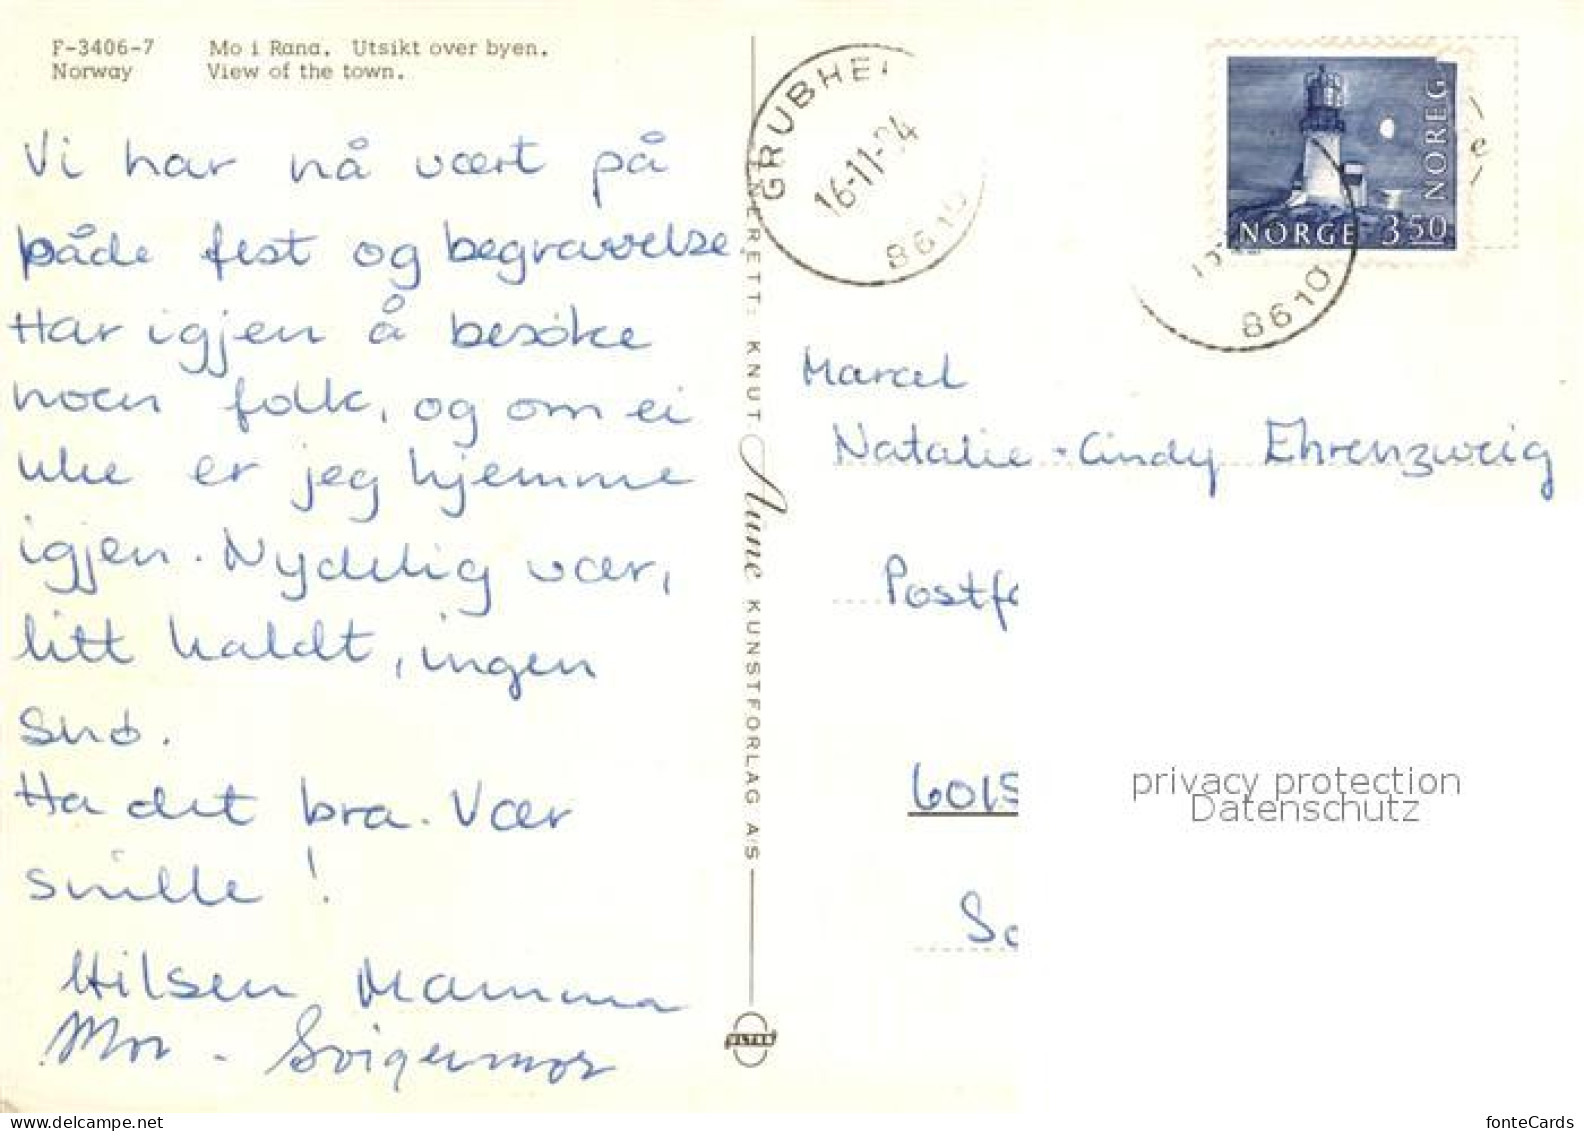 F-3406-7 Mo i Rana. Utsikt over byen.
Norway View of the town.
Vi har nå vært på
både fest og begravelse.
Har igjen å besøke
noen folk, og om ei
uke er jeg hjemme
igjen. Nydelig vær,
litt kaldt, ingen
snø.
Ha det bra. Vær
snille!
Hilsen Mamma
Mor - Svigermor
ENERETT: KNUT Aune KUNSTFORLAG A/S
GRUBHEI
16-11-
8610
NOREG
NORGE 350
8610
Marcel
Natalie - Cindy Ehrenzweig
Postf
6015
privacy protection
Datenschutz
fonteCards